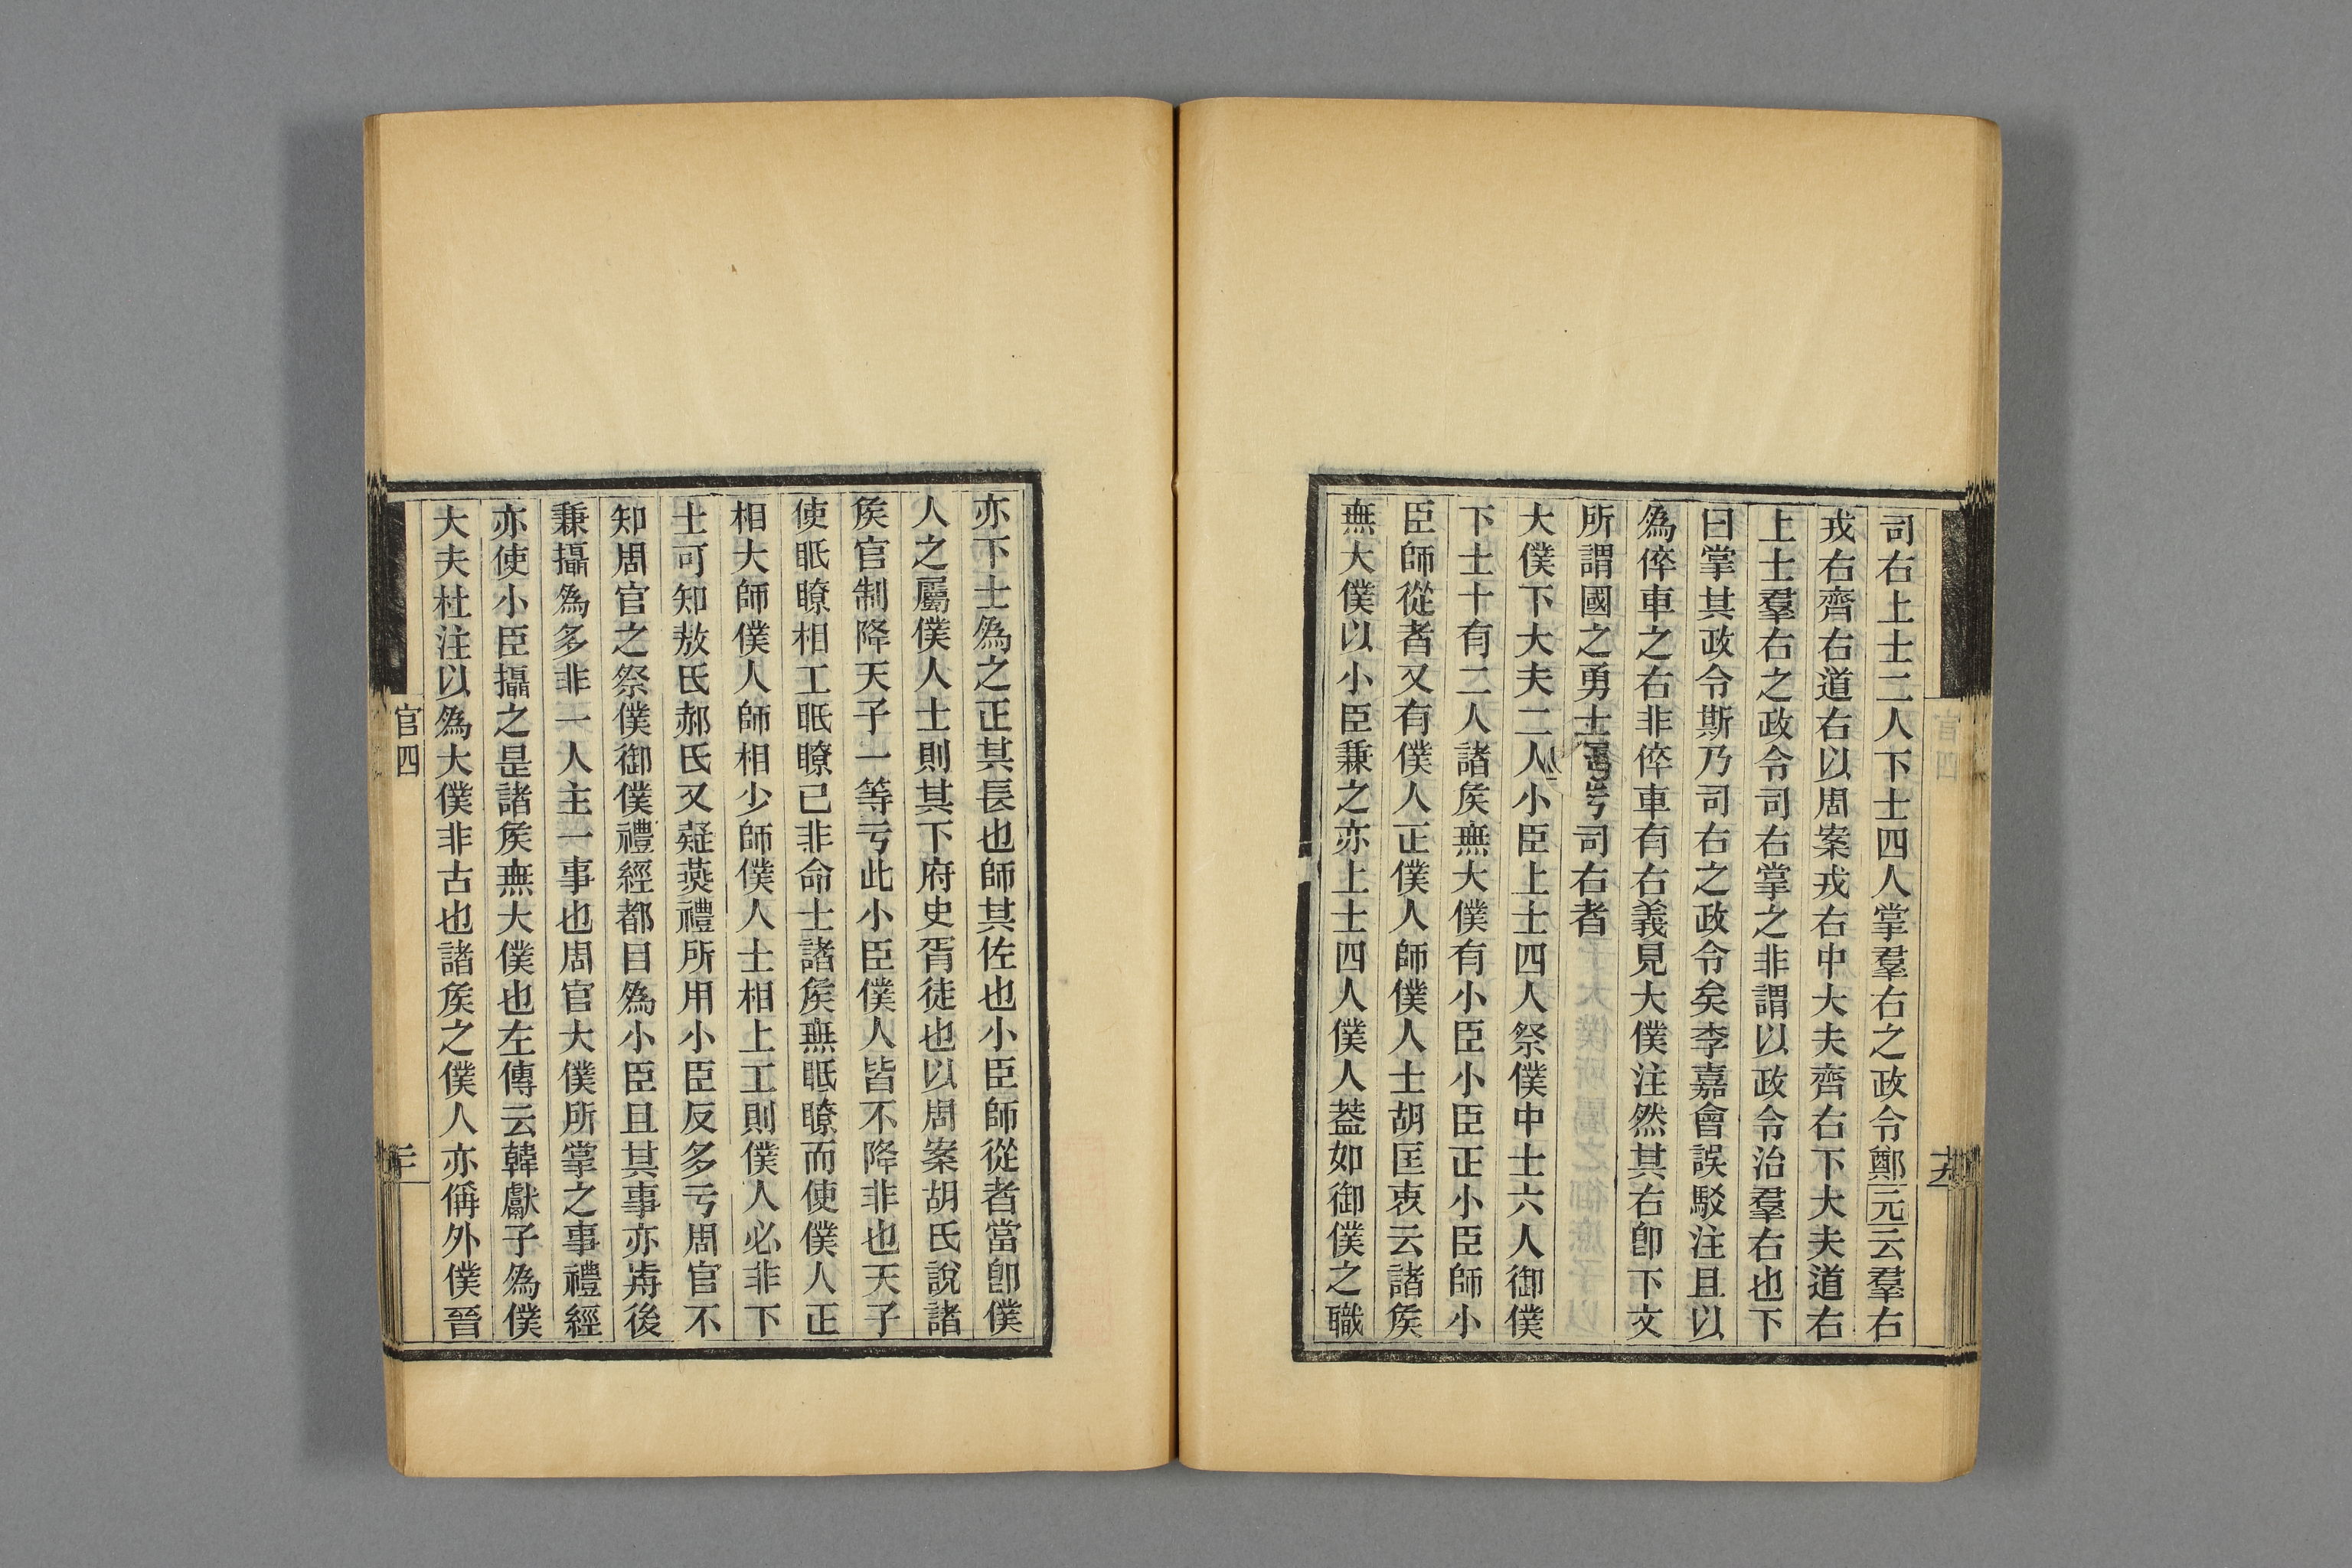 司右上士二人下士四人掌羣右之政令鄭元云羣右
戎右齊右道右以周案戎右中大夫齊右下大夫道右
上士羣右之政令司右掌之非謂以政令治羣右也下
曰掌其政令斯乃司右之政令矣李嘉會誤駁注且以
爲倅車之右非倅車有右義見大僕注然其右卽下文
所謂國之勇士屬司右者
大僕下大夫二人小臣上士四人祭僕中士六人御僕
下士十有二人諸矦無大僕有小臣小臣正小臣師小
臣師從者又有僕人正僕人師僕人士胡匡衷云諸矦
無大僕以小臣兼之亦上士四人僕人葢如御僕之職
亦下士爲之正其長也師其佐也小臣師從者當卽僕
人之屬僕人士則其下府史胥徒也以周案胡氏說諸
矦官制降天子一等亏此小臣僕人皆不降非也天子
使眂瞭相工眂瞭已非命士諸矦無眂瞭而使僕人正
相大師僕人師相少師僕人士相上工則僕人必非下
士可知敖氏郝氏又疑燕禮所用小臣反多亏周官不
知周官之祭僕御僕禮經都目爲小臣且其事亦歬後
兼攝爲多非一人主一事也周官大僕所掌之事禮經
亦使小臣攝之是諸矦無大僕也左傳云韓獻子爲僕
大夫杜注以爲大僕非古也諸矦之僕人亦偁外僕晉
官四